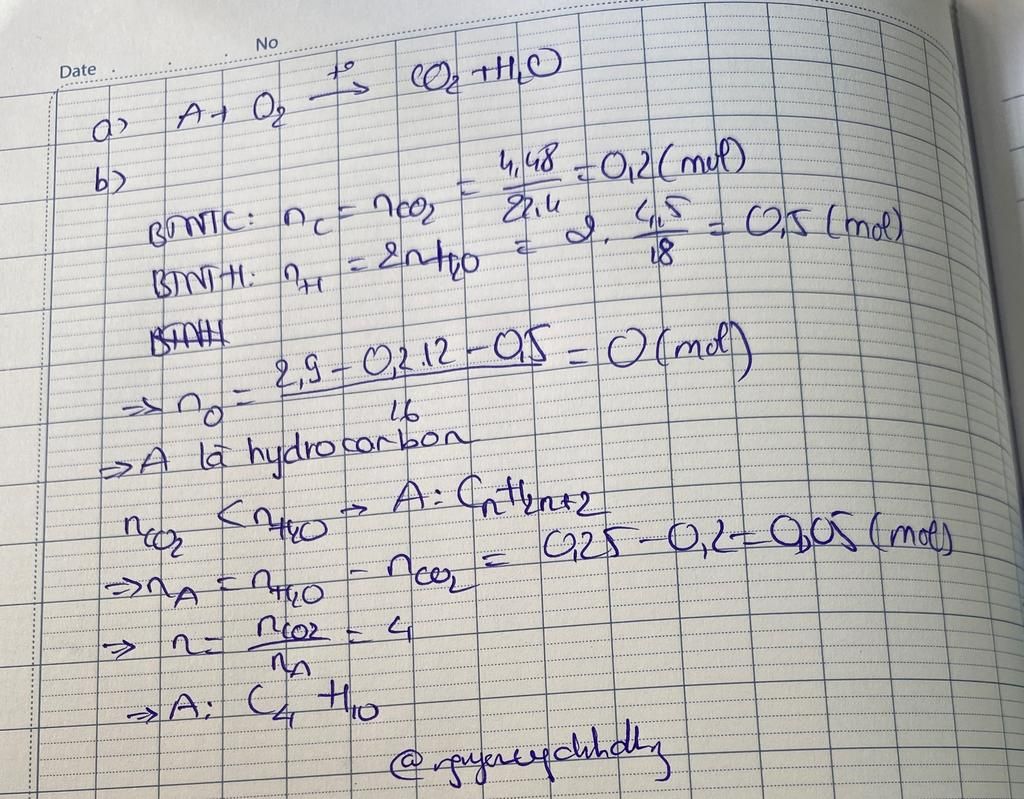 Date No
a) A + O₂ →(t°) CO₂ + H₂O
b)
BTNTC: n_C = n_CO₂ = 4,48/22,4 = 0,2 (mol)
BTNTH: n_H = 2n_H₂O = 2. 4,5/18 = 0,5 (mol)
⇒ n_O = (2,9 - 0,2.12 - 0,5)/16 = 0 (mol)
⇒ A là hydrocarbon
n_CO₂ < n_H₂O → A: CnH2n+2
⇒ n_A = n_H₂O - n_CO₂ = 0,25 - 0,2 = 0,05 (mol)
⇒ n = n_CO₂/n_A = 4
⇒ A: C₄H₁₀